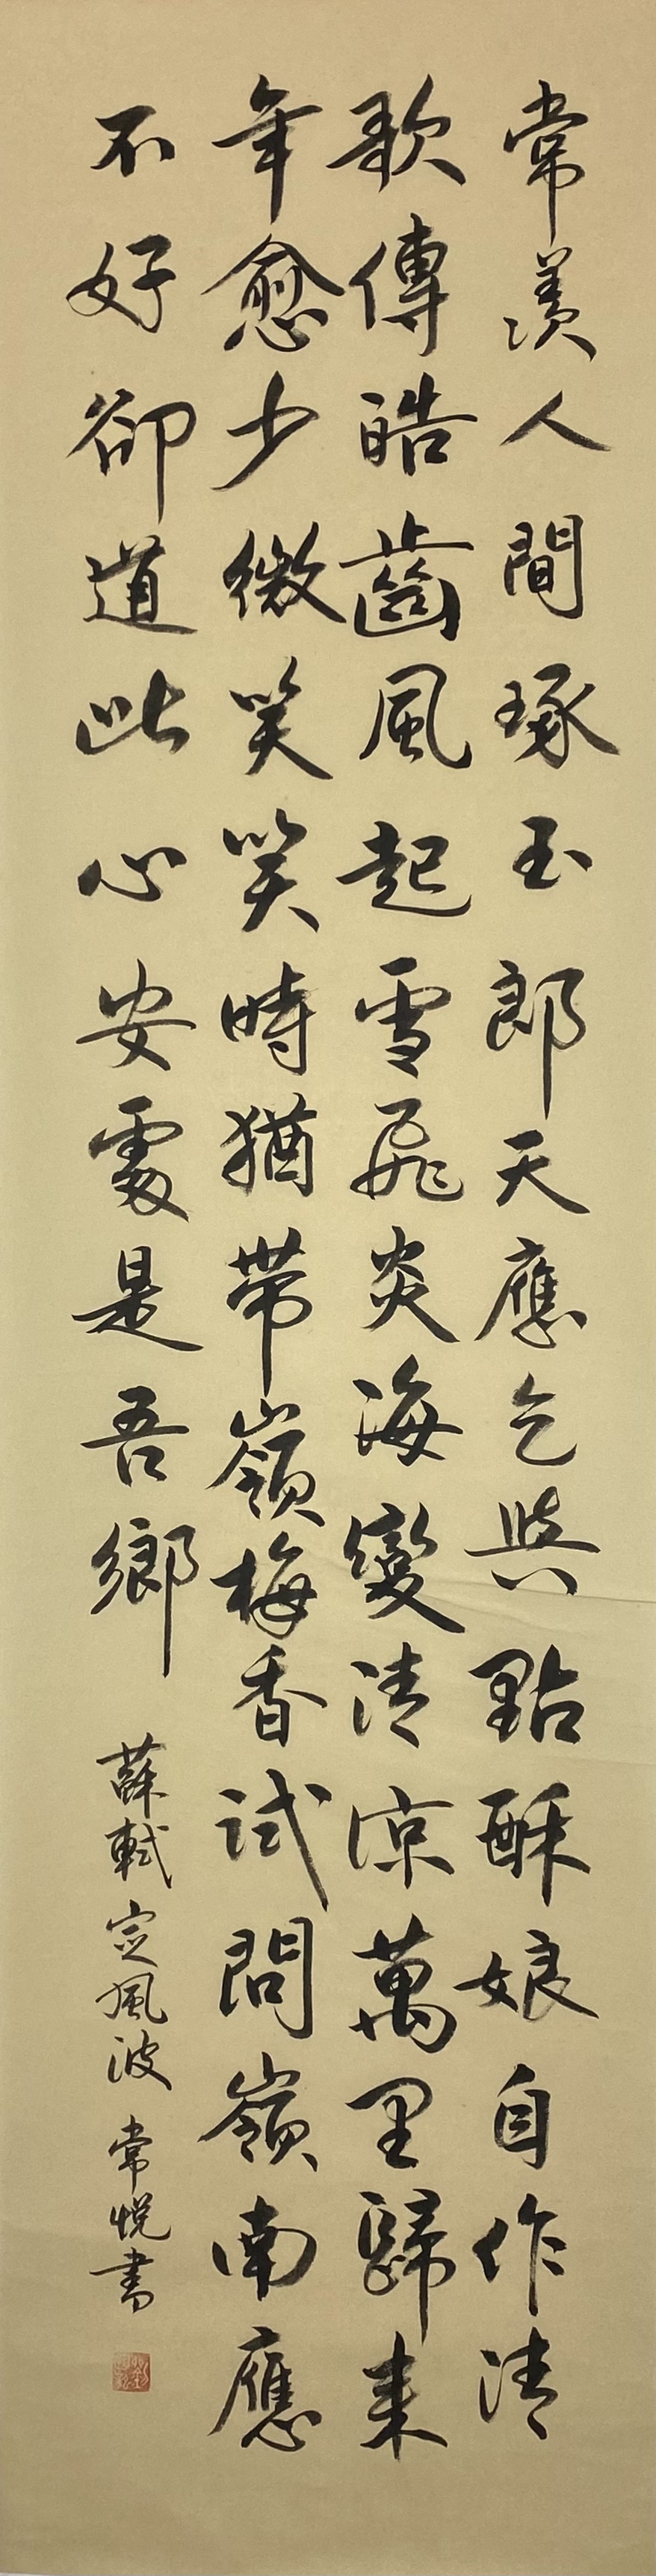 常羨人間琢玉郎天應乞與點酥娘自作清
歌傳皓齒風起雪飛炎海變清涼萬里歸来
年愈少微笑笑時猶带嶺梅香試問嶺南應
不好卻道此心安處是吾鄉
蘇軾定風波 常悦書